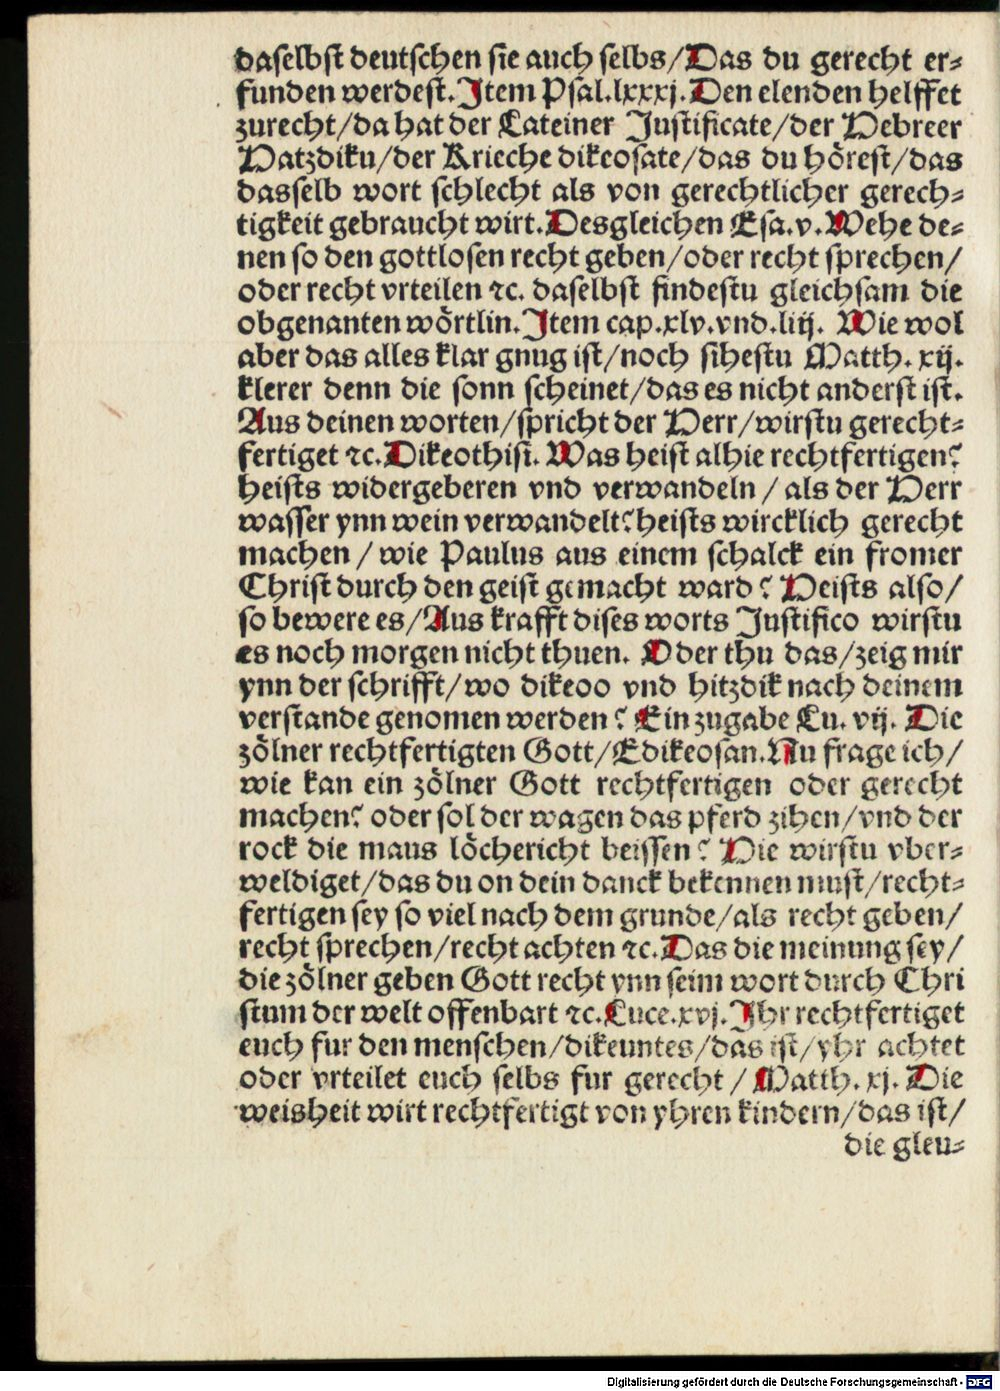 daselbst deutschen sie auch selbs/Das du gerecht er⸗
funden werdest.Item Psal.lxxxj.Den elenden helffet
zurecht/da hat der Lateiner Justificate/der Hebreer
Hatzdiku/der Krieche dikeosate/das du hörest/das
dasselb wort schlecht als von gerechtlicher gerech⸗
tigkeit gebraucht wirt.Desgleichen Esa.v.Wehe de⸗
nen so den gottlosen recht geben/oder recht sprechen/
oder recht vrteilen ⁊c. daselbst findestu gleichsam die
obgenanten wörtlin.Item cap.xlv.vnd.liij. Wie wol
aber das alles klar gnug ist/noch sihestu Matth. xij.
klerer denn die sonn scheinet/das es nicht anderst ist.
Aus deinen worten/spricht der Herr/wirstu gerecht⸗
fertiget ⁊c.Dikeothisi. Was heist alhie rechtfertigen?
heists widergeberen vnd verwandeln / als der Herr
wasser ynn wein verwandelt?heists wircklich gerecht
machen / wie Paulus aus einem schalck ein fromer
Christ durch den geist gemacht ward? Heists also/
so bewere es/Aus krafft dises worts Justifico wirstu
es noch morgen nicht thuen. Oder thu das/zeig mir
ynn der schrifft/wo dikeoo vnd hitzdik nach deinem
verstande genomen werden? Ein zugabe Lu. vij. Die
zölner rechtfertigten Gott/Edikeosan.Nu frage ich/
wie kan ein zölner Gott rechtfertigen oder gerecht
machen? oder sol der wagen das pferd zihen/vnd der
rock die maus löchericht beissen? Hie wirstu vber⸗
weldiget/das du on dein danck bekennen must/recht⸗
fertigen sey so viel nach dem grunde/als recht geben/
recht sprechen/recht achten ⁊c.Das die meinung sey/
die zölner geben Gott recht ynn seim wort durch Chri
stum der welt offenbart ⁊c.Luce.xvj.Ihr rechtfertiget
euch fur den menschen/dikeuntes/das ist/yhr achtet
oder vrteilet euch selbs fur gerecht / Matth. xj. Die
weisheit wirt rechtfertigt von yhren kindern/das ist/
die gleu⸗
Digitalisierung gefördert durch die Deutsche Forschungsgemeinschaft - DFG